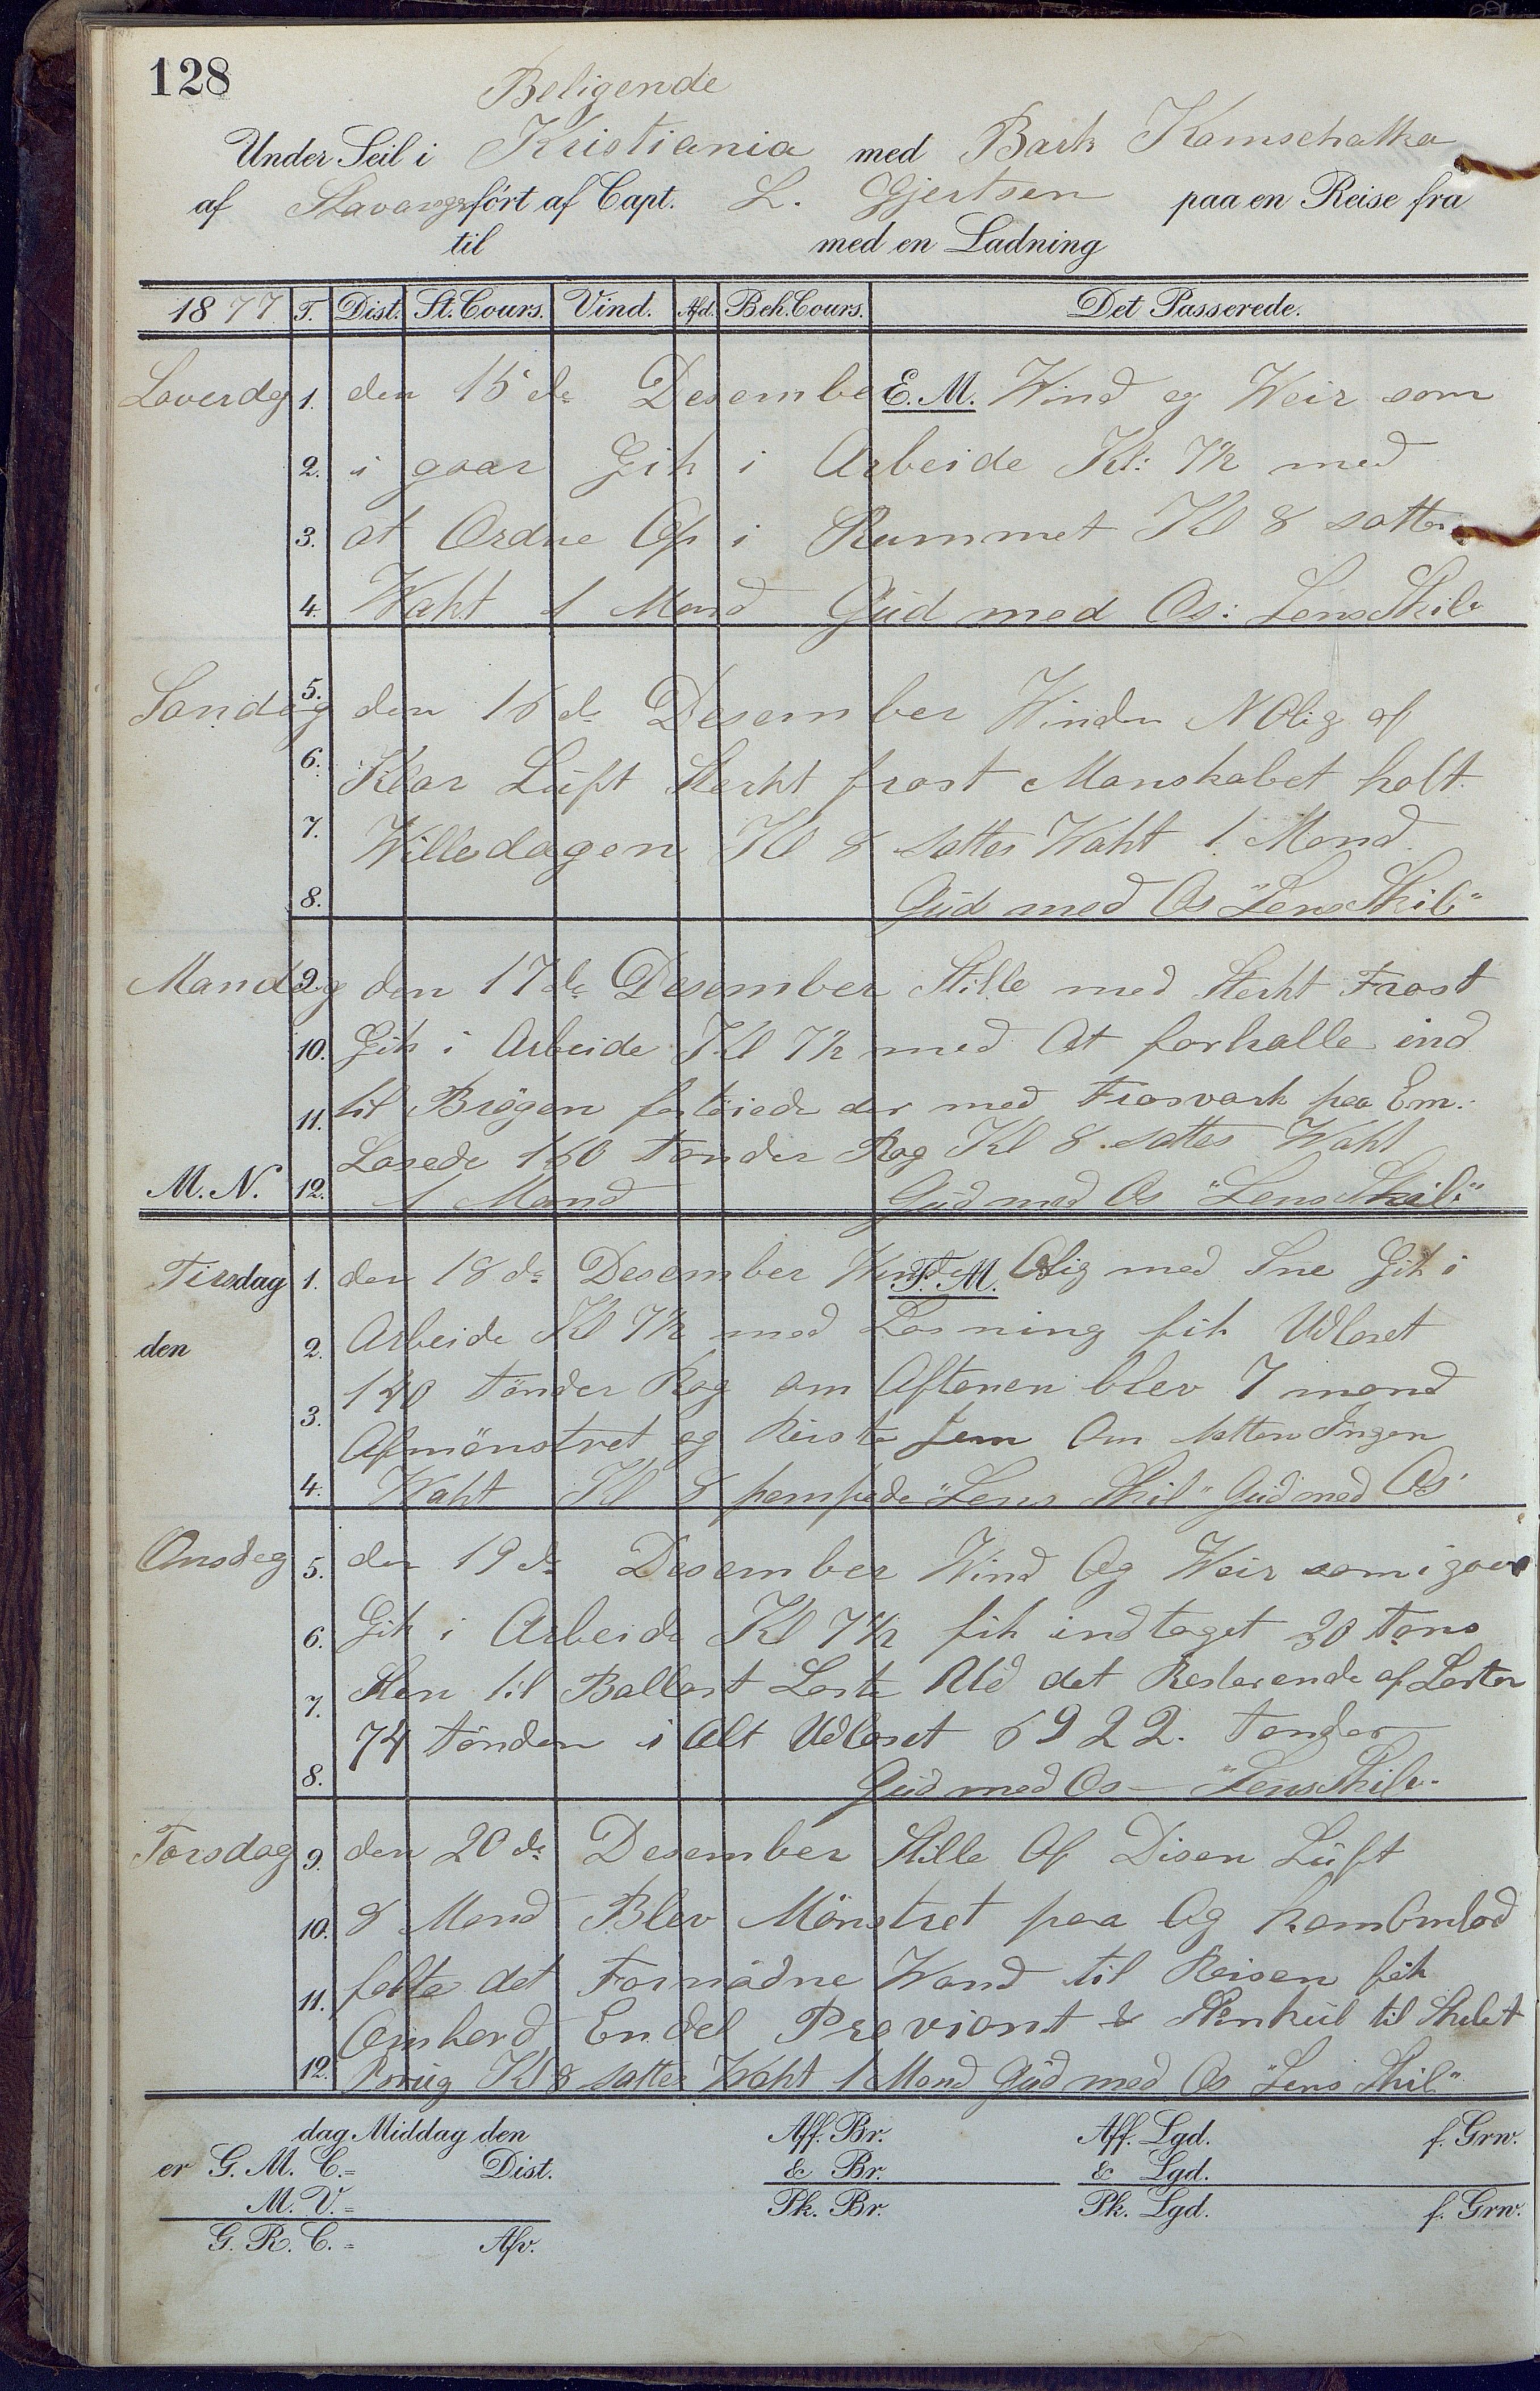 128
Beligende
Under Seil i Kristiania med Bark Kamschatka
af Stavanger fört af Capt. L. Gjertsen paa en Reise fra
til med en Ladning
1877 T. Dist. St. Cours. Vind. Afd. Beh. Cours. Det Passerede.
Loverdag 1. den 15de Desember E. M. Wind og Weir som
2. i gaar Gik i Arbeide Kl: 7½ med
3. at Ordne Op i Rummet Kl 8 sattes
4. Waht 1 Mand Gud med Os: Lens Skib
Sondag 5. den 16de Desember Winden NOlig af
6. Klar Luft Sterkt frost Manskabet holt
7. Willedagen Kl 8 sattes Waht 1 Mand
8. Gud med Os "Lens Skib"
Mandag 9. den 17de Desember Stille med Sterkt Frost
10. Gik i Arbeide Kl 7½ med At forhalle ind
11. til Brögen fortöiede der med paa Em.
Losede 160 tonder Rog Kl 8 sattes Waht
M. N. 12. 1 Mand Gud med Os "Lens Skib"
Tirsdag 1. den 18de Desember Winden F. M. Olig med Sne Gik i
den 2. Arbeide Kl 7½ med Losning fik Udloset
3. 140 tönder Rog om Aftenen blev 7 mand
Afmönstret og Reiste Jem Om Natten Ingen
4. Waht Kl 8 pempede "Lens Skib" Gud med Os
Onsdag 5. den 19de Desember Wind Og Weir som i gaar
6. Gik i Arbeide Kl 7½ fik indtaget 30 tons
7. Sten til Ballast Loste Ud det Resterende af Lasten
74 tönder i Alt Udloset 6922. tonder
8. Gud med Os — "Lens Skib"
Torsdag 9. den 20de Desember Stille Af Disen Luft
10. 8 Mand Blev Mönstret paa Og kom Ombod
11. følte det Fornödne Wand til Reisen fik
Omberd Endel Proviant & Stenkul til Skibet
12. Brug Kl 8 sattes Waht 1 Mand Gud med Os "Lens Skib"
dag Middag den Aff. Br. Aff. Lgd. f. Grw.
er G. M. C. = Dist. & Br. & Lgd.
M. V. = Pk. Br. Pk. Lgd. f. Grw.
G. R. C. = Afv.